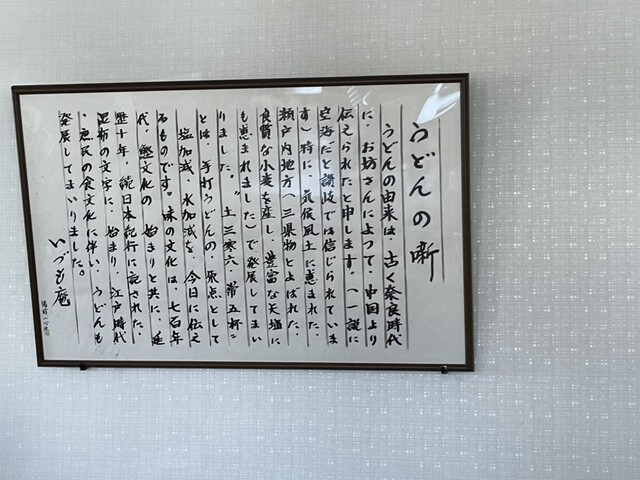 うどんの噺
うどんの由来は、古く奈良時代
に、お坊さんによって、中国より
伝えられたと申します。(一説に
空海だと讃岐では信じられていま
す)特に、気候風土に恵まれた、
瀬戸内地方(三県物とよばれた、
良質な小麦を産し、豊富な天塩に
も恵まれました)で発展してまい
りました。〝土三寒六・常五杯〟
とは、手打うどんの、原点として
塩加減、水加減を、今日に伝え
るものです。味の文化は、七百年
代、麺文化の 始まりと共に、延
歴十年、続日本紀行に記された、
混飩の文字に、始まり、江戸時代
・庶民の食文化に伴い、うどんも
発展してまいりました。
いづも庵